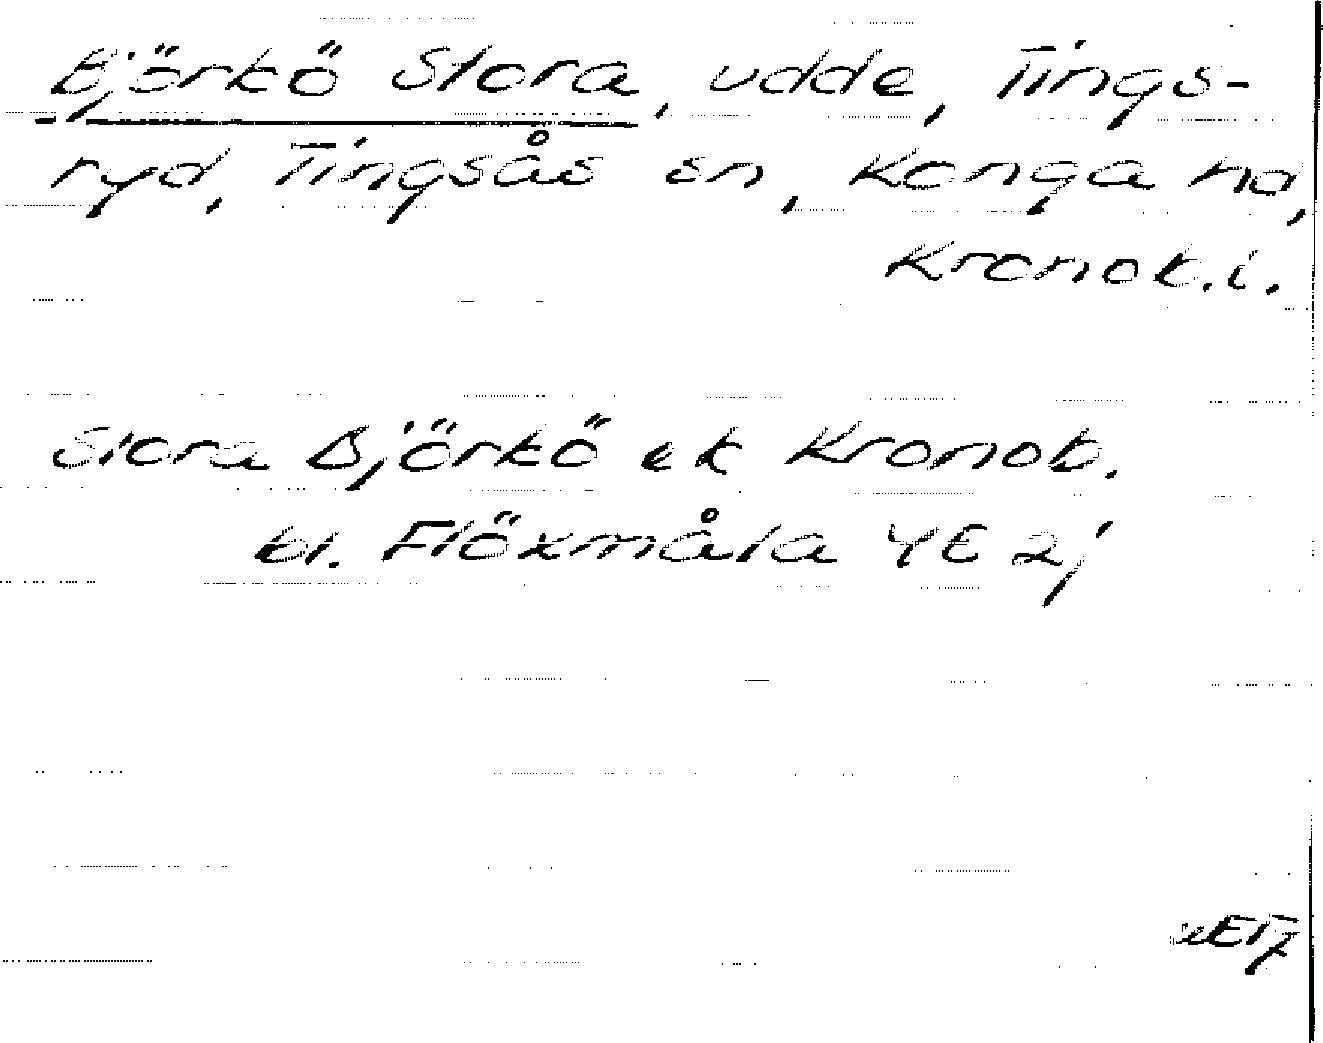 Björkö Stora, udde, Tings-
ryd, Tingsås sn, Konga hd,
Kronob.l.
Stora Björkö ek Kronob.
bl. Flöxmåla 4E 2j